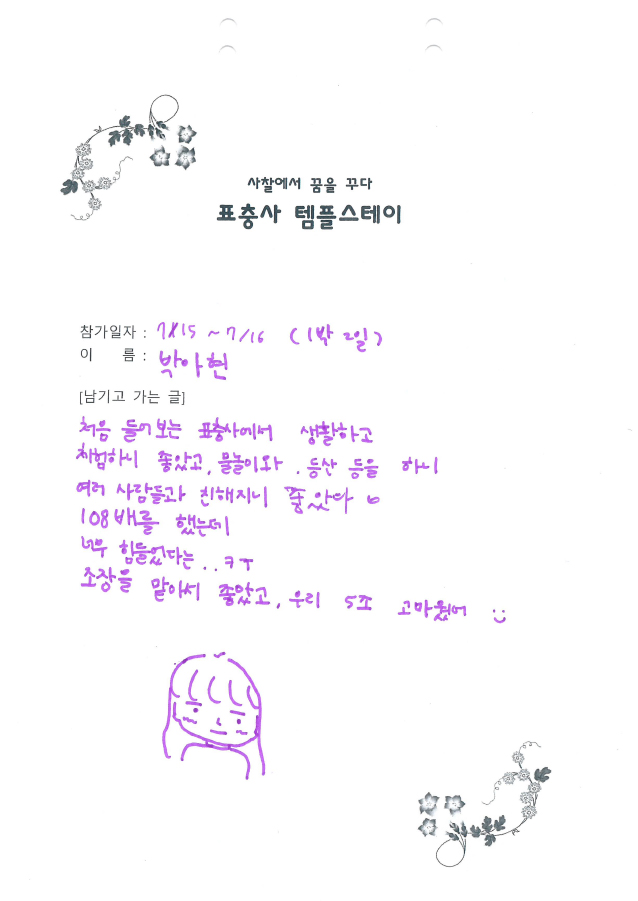 사찰에서 꿈을 꾸다
표충사 템플스테이
참가일자 : 7/15 ~ 7/16 (1박 2일)
이 름 : 박아현
[남기고 가는 글]
처음 들어보는 표충사에서 생활하고
체험하니 좋았고, 물놀이와 , 등산 등을 하니
여러 사람들과 친해지니 좋았다
108배를 했는데
너무 힘들었다는..ㅋㅜ
조장을 맡아서 좋았고, 우리 5조 고마웠어 :)